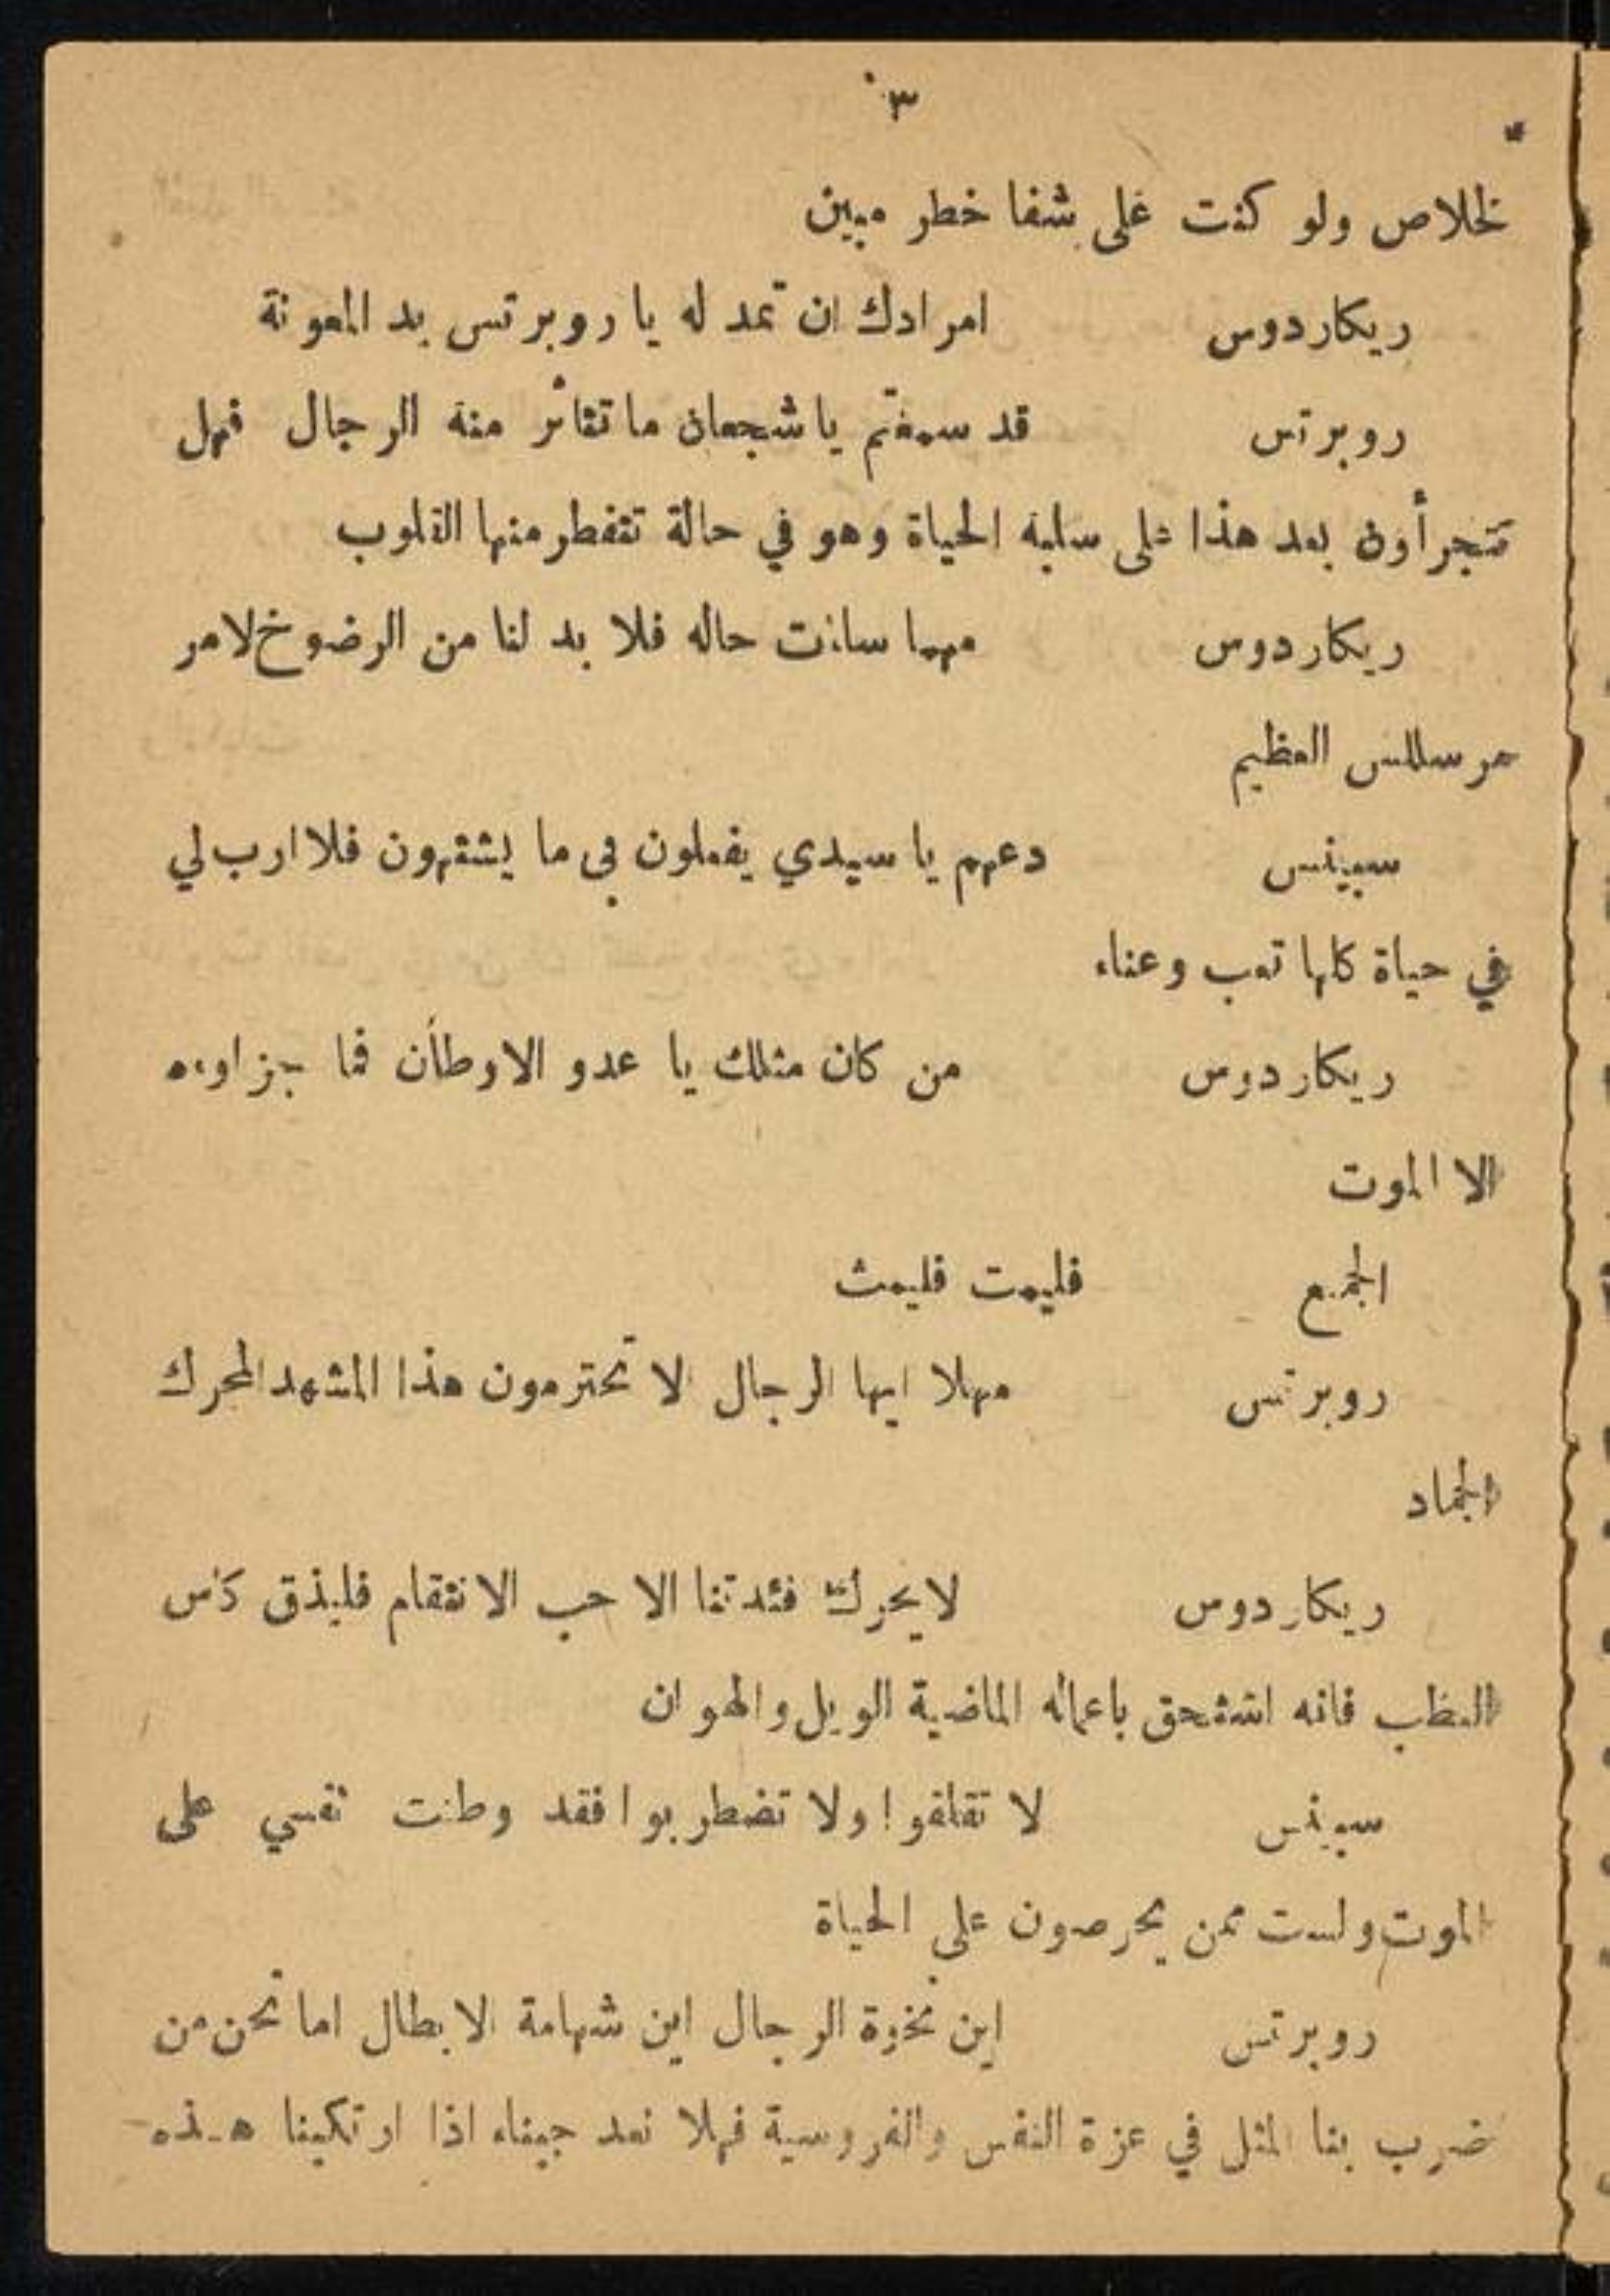 ٣٠
لخلاص ولو كنت على شفا خطر مبين
ريكاردوس امرادك ان تمد له يا روبرتس يد المعونة
روبرتس قد سمعتم يا شجعان ما تتأثر منه الرجال فهل
تتجرأون بعد هذا على سلبه الحياة وهو في حالة تتفطر منها القلوب
ريكاردوس مهما ساءت حاله فلا بد لنا من الرضوخ لامر
مرسللس العظيم
سبينس دعهم يا سيدي يفعلون بي ما يشتهون فلا ارب لي
في حياة كلها تعب وعناء
ريكاردوس من كان مثلك يا عدو الاوطان فما جزاوءه
الا الموت
الجميع فليمت فليمت
روبرتس مهلا ايها الرجال الا تحترمون هذا المشهد المحرك
الجماد
ريكاردوس لا يحرك فئدتنا الا حب الانتقام فليذق كأس
العطب فانه استحق باعماله الماضية الويل والهوان
سبينس لا تقلقوا ولا تضطربوا فقد وطنت نفسي على
الموت ولست ممن يحرصون على الحياة
روبرتس اين نخوة الرجال اين شهامة الابطال اما نحن من
ضرب بنا المثل في عزة النفس والفروسية فهلا نعد جبناء اذا ارتكبنا هذه